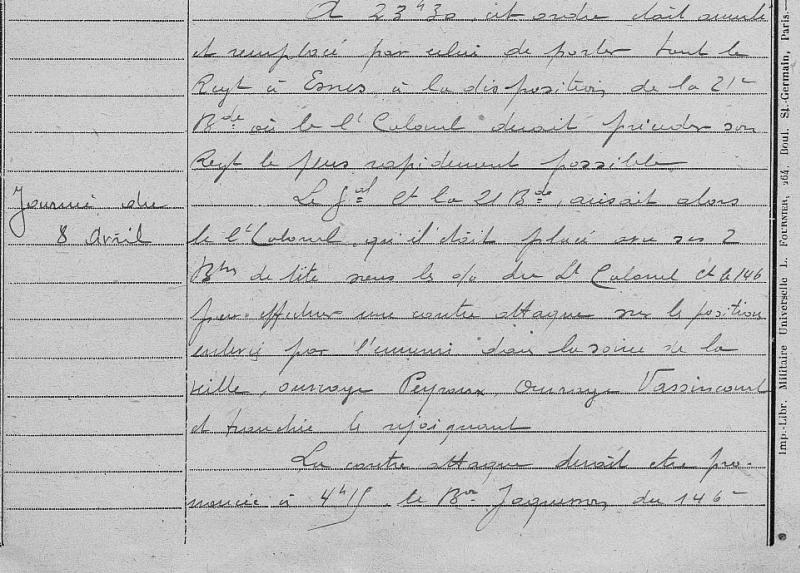 A 23h30, cet ordre était annulé
et remplacé par celui de porter tout le
Regt à Esnes à la disposition de la 21e
Bde où le lt Colonel devait précéder son
Regt le plus rapidement possible
Journée du
8 Avril
Le Gal Ct la 21 Bde, avisait alors
le lt Colonel, qu'il était placé avec ses 2
Btns de tête sous les o/o du Lt Colonel Ct le 146
pour effectuer une contre attaque sur les positions
enlevées par l'ennemi dans la soirée de la
veille, ouvrage Peyroux, Ouvrage Vassincourt
et tranchée les rejoignant
La contre attaque devait etre pro-
noncée à 4h15 le Bon Jaquesson du 146e
Imp.-Libr. Militaire Universelle L. FOURNIER, 264, Boul. St-Germain, Paris.